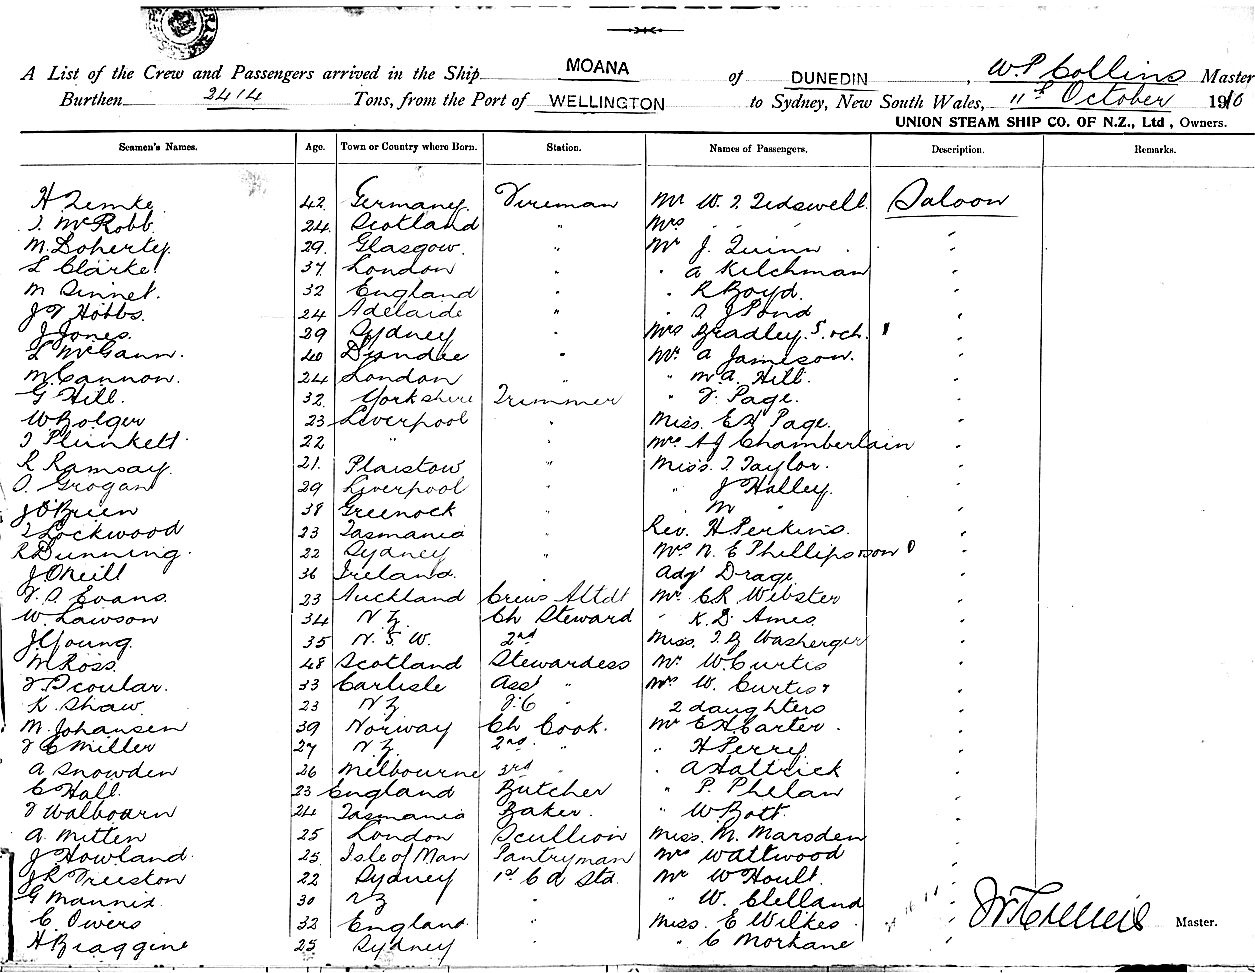 A List of the Crew and Passengers arrived in the Ship MOANA of DUNEDIN, W.P Collins Master
Burthen 2414 Tons, from the Port of WELLINGTON to Sydney, New South Wales, 11th October 1910
UNION STEAM SHIP CO. OF N.Z., Ltd, Owners.
Seamen's Names. Age. Town or Country where Born. Station. Names of Passengers. Description. Remarks.
H Zemke 42 Germany Fireman Mr W. T. Tidswell Saloon
T. McRobb 24 Scotland " Mrs " "
M. Doherty 29 Glasgow. " Mr J. Quinn "
L Clarke 37 London " " A Kilchman "
M Sinnet. 32 England " " R Boyd "
J T Hobbs. 24 Adelaide " " S J Pond "
J Jones. 29 Sydney " Mrs Bradley S. & ch. 1 "
L McGann. 40 Dundee " Mr. A Jameson. "
M Cannon. 24 London " " M. A. Hill. "
G Hill. 32 Yorkshire Trimmer " F. Page. "
W Bolger 23 Liverpool " Miss. E H Page. "
T Plunkett 22 " " Mrs A J Chamberlain "
R Ramsay. 21. Plaistow " Miss. T. Taylor. "
Grogan 29 Liverpool " " J Halley. "
J O'Brien 38 Greenock " " M " "
T Lockwood 23 Tasmania " Rev. H Perkins. "
R Dunning. 22 Sydney " Mrs N. E Phillipson "
J ONeill 36 Ireland. Adj' Drage "
Evans. 23 Auckland Crews Attdt Mr. C R Webster "
W. Lawson 34 N Z. Ch Steward " K. D. Ames "
J. Young. 35 N. S. W. 2nd " Miss. Washerger "
M Ross. 48 Scotland Stewardess Mr. W. Curtis "
F Scoular. 33 Carlisle Asst " Mrs W. Curtis & "
K Shaw 23 N Z " 2 daughters "
M. Johansen 39 Norway Ch Cook. Mr E H Carter. "
F C Miller 27 N. Z. 2nd " " H Perry "
A Snowden 26 Melbourne 3rd " " A Hattrick "
C Hall. 23 England Butcher " P. Phelan "
F Walbourn 24 Tasmania Baker. " W Bott. "
A. Mitten 25 London Scullion Miss. M. Marsden "
J Howland. 25 Isle of Man Pantryman Mrs Wattwood "
J R Treeston 22 Sydney 1st C & Std. Mr W Hoult. "
G Mannix. 30 N Z " " W. Clelland "
C Owers 32 England. " Miss. E Wilkes "
H Braggine 25 Sydney " " C Morhane "
W P Collins Master.